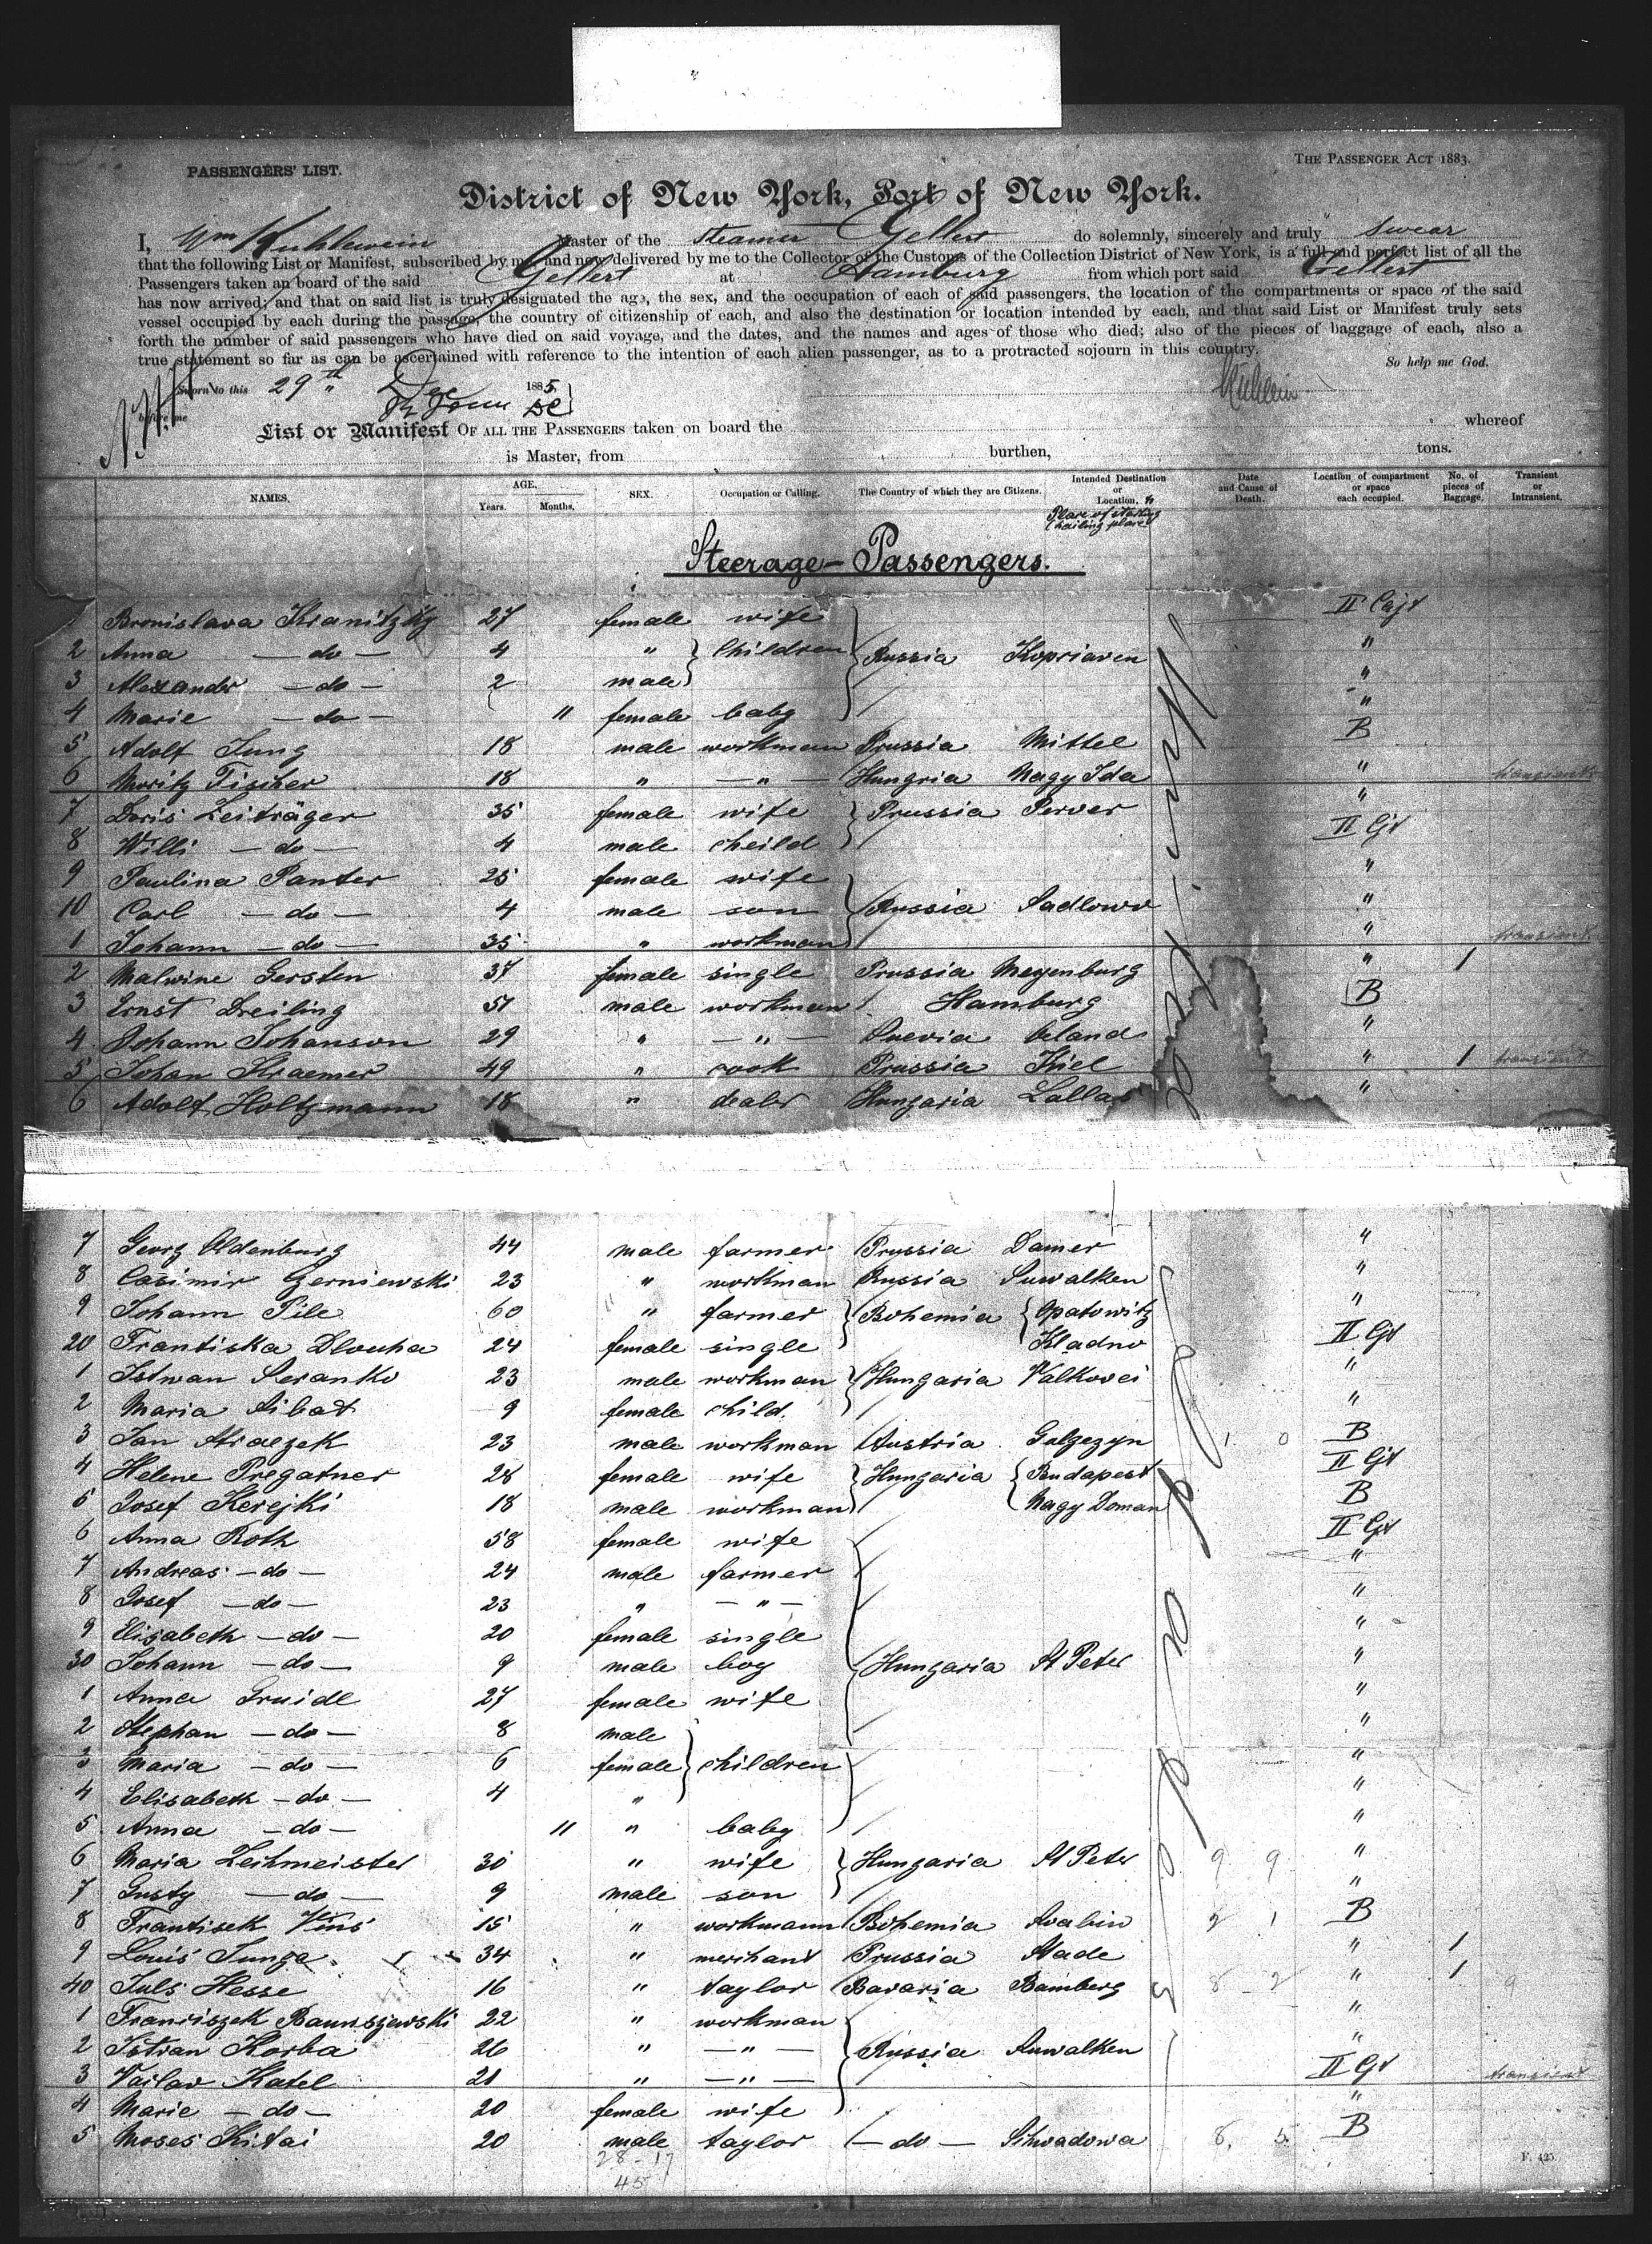 PASSENGERS' LIST.
THE PASSENGER ACT 1883.
District of New York, Port of New York.
I, Wm Kuhlewein Master of the Steamer Gellert do solemnly, sincerely and truly swear
that the following List or Manifest, subscribed by me, and now delivered by me to the Collector of the Customs of the Collection District of New York, is a full and perfect list of all the
Passengers taken on board of the said Gellert at Hamburg from which port said Gellert
has now arrived; and that on said list is truly designated the age, the sex, and the occupation of each of said passengers, the location of the compartments or space of the said
vessel occupied by each during the passage, the country of citizenship of each, and also the destination or location intended by each, and that said List or Manifest truly sets
forth the number of said passengers who have died on said voyage, and the dates, and the names and ages of those who died; also of the pieces of baggage of each, also a
true statement so far as can be ascertained with reference to the intention of each alien passenger, as to a protracted sojourn in this country.
So help me God.
Sworn to this 29th Dec 1885
before me
List or Manifest OF ALL THE PASSENGERS taken on board the whereof
is Master, from burthen, tons.
NAMES. AGE. Years. Months. SEX. Occupation or Calling. The Country of which they are Citizens. Intended Destination or Location. Date and Cause of Death. Location of compartment or space each occupied. No. of pieces of Baggage. Transient or Intransient.
Place of starting
(hailing place)
Steerage-Passengers.
Bronislava Kranitzky 27 female wife II Cajt
2 Anna — do — 4 " children Russia Kopriaven "
3 Alexander — do — 2 male "
4 Marie — do — " female baby "
5 Adolf Jung 18 male workman Prussia Mittel B
6 Moritz Fischer 18 " — " — Hungria Nagy Ida " transient
7 Doris Leiträger 35 female wife Prussia Perver "
8 Willi — do — 4 male cheild II Cjt
9 Paulina Panter 25 female wife "
10 Carl — do — 4 male son Russia Sadlowo "
1 Johann — do — 35 " workman " transient
2 Malwine Gersten 37 female single Prussia Meyenburg " 1
3 Ernst Dreiling 51 male workman Hamburg B
4 Johann Johanson 29 " — " — Suevia Oeland "
5 Johan Kraemer 49 " cook Prussia Kiel " 1 transient
6 Adolf Holtzmann 18 " dealer Hungaria Lallas "
7 Georg Oldenburg 44 male farmer Prussia Damer "
8 Casimir Gerniewski 23 " workman Russia Suwalken "
9 Johann Pile 60 " farmer Bohemia Opatowitz "
20 Frantiska Dlouha 24 female single Kladno II Cjt
1 Istwan Seranko 23 male workman Hungaria Valkovci "
2 Maria Sibat 9 female child. "
3 Jan Mraczek 23 male workman Austria Golgezyn 1 0 B
4 Helene Pregatner 28 female wife Hungaria Budapest II Cjt
5 Josef Kerejki 18 male workman Nagy Doman B
6 Anna Roth 58 female wife II Cjt
7 Andreas — do — 24 male farmer "
8 Josef — do — 23 " — " — "
9 Elisabeth — do — 20 female single "
30 Johann — do — 9 male boy Hungaria St Peter "
1 Anna Gruidl 27 female wife "
2 Stephan — do — 8 male "
3 Maria — do — 6 female children "
4 Elisabeth — do — 4 " "
5 Anna — do — " " baby "
6 Maria Zeitmeister 30 " wife Hungaria St Peter 9 9 "
7 Gusty — do — 9 male son "
8 Frantisek Vins 15 " workmann Bohemia Svabin 2 1 B
9 Louis Junge 34 " merchant Prussia Stade " 1
40 Juls Hesse 16 " taylor Bavaria Bamberg 8 2 " 1 9
1 Franciszek Baunszewski 22 " workman "
2 Istvan Korba 26 " — " — Russia Suwalken "
3 Vaclav Katel 21 " — " — II Cjt transient
4 Marie — do — 20 female wife "
5 Moses Kitai 20 male taylor — do — Schwadowa 8. 5. B
28 - 17
45
F. 425